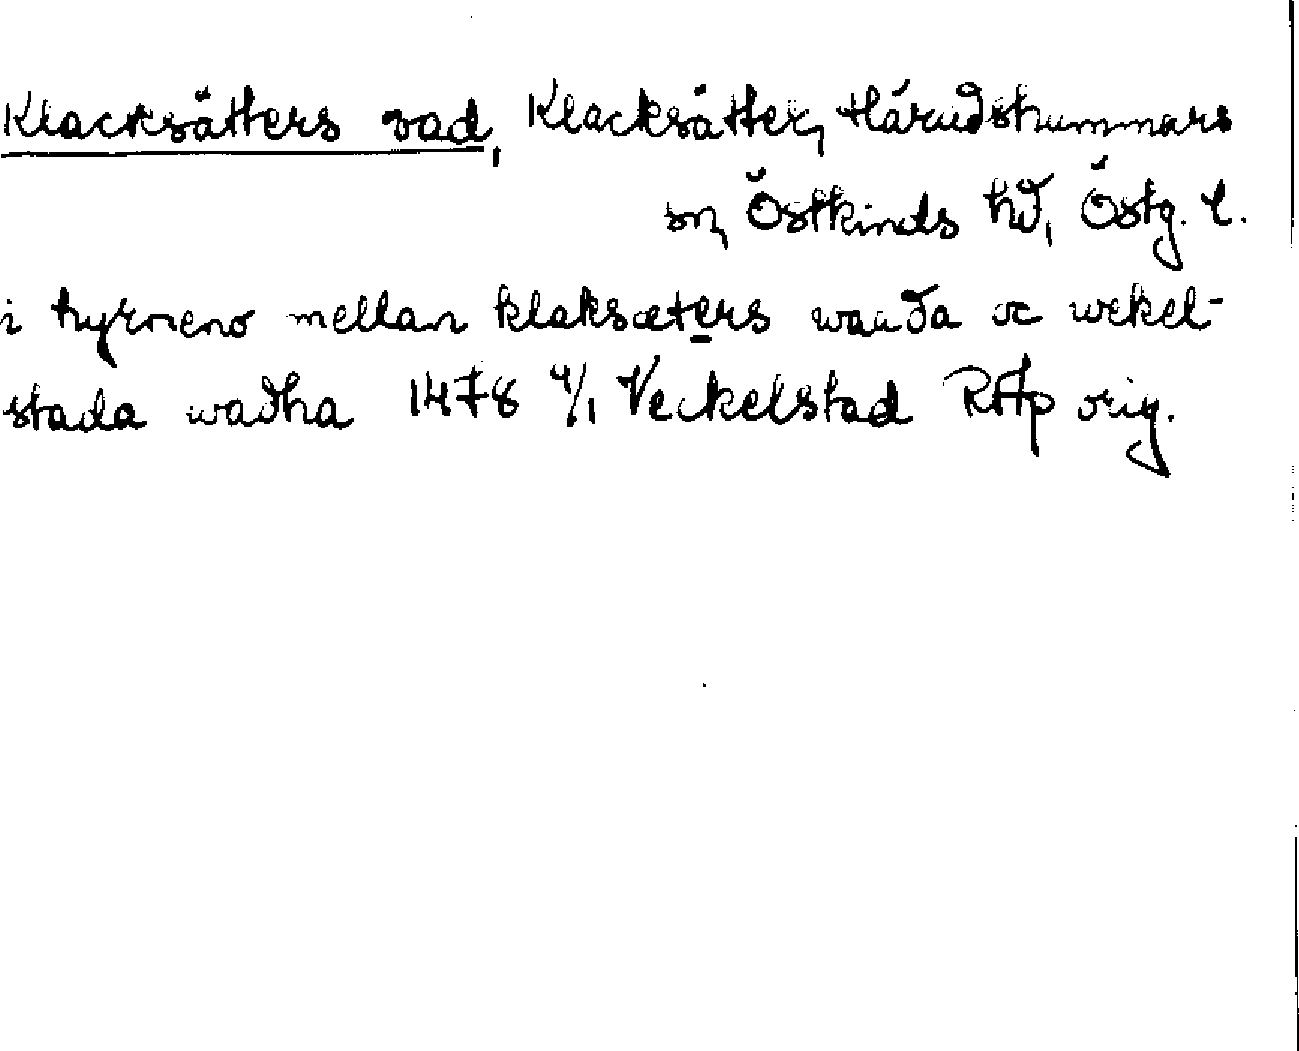 Klacksätters vad, Klacksätter, Häradshammars
sn, Östkinds hd, Östg. l.
i hyrneno mellan klaksæters waada oc wekel-
stada wadha 1478 4/1 Veckelstad RAp orig.